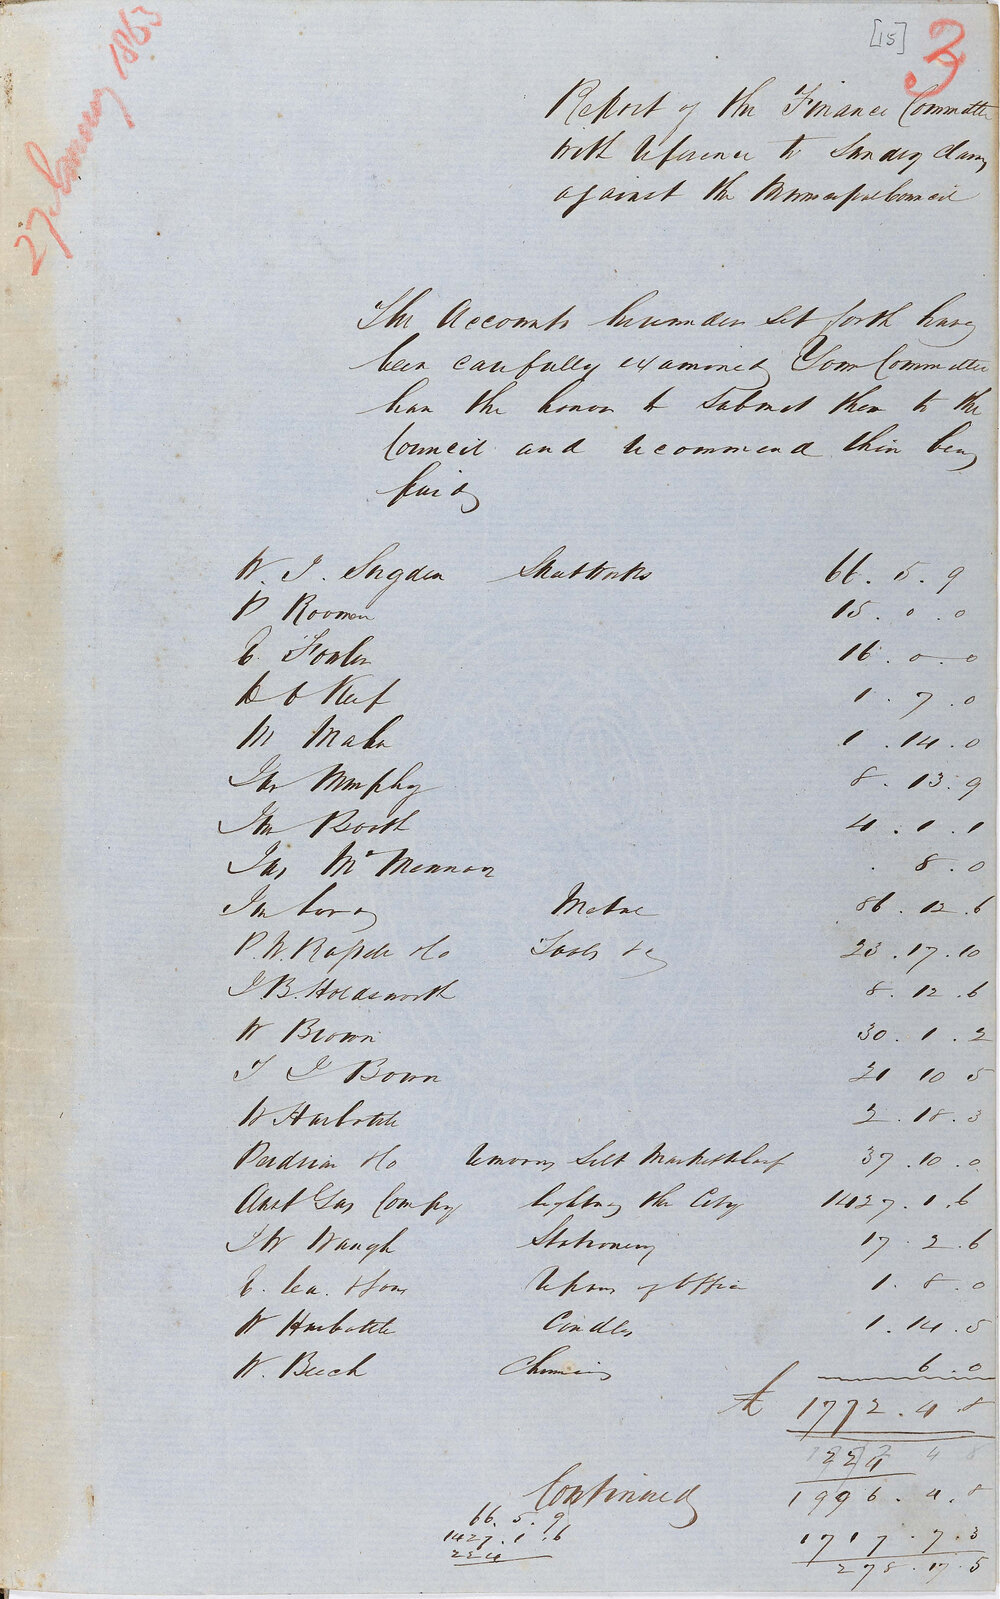 [15]
3
27 January 1863
Report of the Finance Committee
with reference to Sundry Claims
against the Municipal Council
The Accounts hereunder set forth having
been carefully examined Your Committee
have the honor to submit them to the
Council and recommend their being
paid
W. J. Sugden Street Works 66. 5. 9
P 15. 0. 0
E. Fowler 16. 0. 0
D O Keef 1. 7. 0
M Maher 1. 14. 0
Jas Murphy 8. 13. 9
Jno Booth 4. 1. 1
Jas McMennon . 8. 0
Jno Metal 86. 12. 6
P. N. Russell & Co Tools &c 23. 17. 10
J B. Holdsworth 8. 12. 6
W Brown 30. 1. 2
T J Bown 21 10 5
W Harbottle 2. 18. 3
Perdriau & Co removing Silt Market Wharf 37. 10. 0
Aust Gas Compy lighting the City 1427. 1. 6
J W Waugh Stationery 17. 2. 6
E. Lea & Sons repairs of Office 1. 8. 0
W Harbottle Candles 1. 14. 5
W. Beech 6. 0
£ 1772. 4. 8
224 4 8
Continued 1996. 4. 8
66. 5. 9
1427. 1. 6
224
1717. 7. 3
278. 17. 5